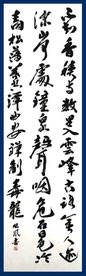 不知香積寺數里入雲峰古木無人逕
深山何處鐘泉聲咽危石日色冷
青松薄暮空潭曲安禪制毒龍